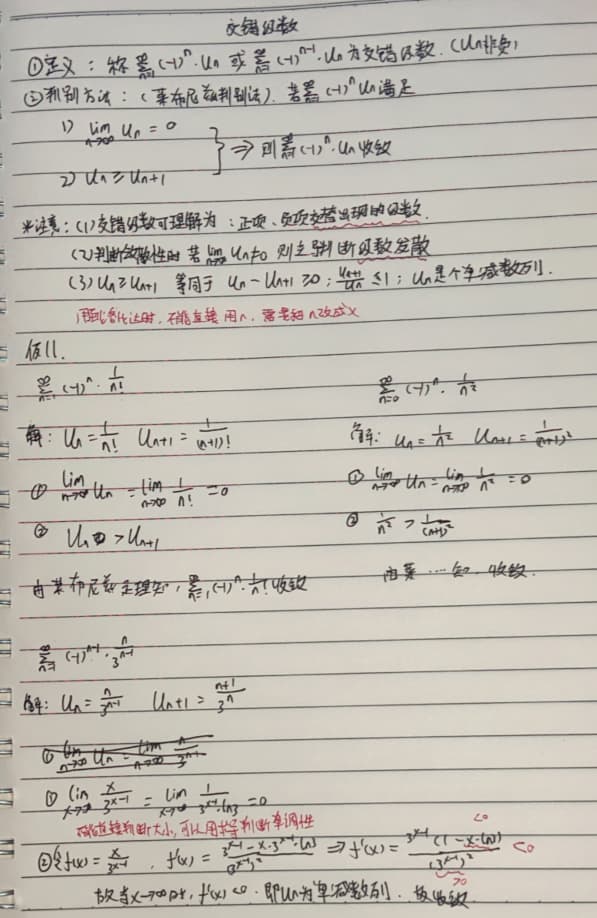 交错级数
①定义：称∑(-1)ⁿ·Uₙ 或 ∑(-1)ⁿ⁻¹·Uₙ 为交错级数.（Uₙ非负）
②判别方法：（莱布尼兹判别法）.若∑(-1)ⁿUₙ满足
1) lim n→∞ Uₙ = 0
⇒ 则∑(-1)ⁿ·Uₙ收敛
2) Uₙ ≥ Uₙ₊₁
*注意：(1)交错级数可理解为：正项、负项交替出现的级数.
(2)判断敛散性时若 lim n→∞ Uₙ≠0 则立刻判断级数发散
(3) Uₙ≥Uₙ₊₁ 等同于 Uₙ-Uₙ₊₁≥0；Uₙ₊₁/Uₙ≤1；Uₙ是个单减数列.
用洛必达时，不能直接用n，需要把n改成x
例11.
∑ n=1 ∞ (-1)ⁿ·1/n!    ∑ n=0 ∞ (-1)ⁿ·1/n²
解：Uₙ=1/n!  Uₙ₊₁=1/(n+1)!    解：Uₙ=1/n²  Uₙ₊₁=1/(n+1)²
① lim n→∞ Uₙ = lim n→∞ 1/n! = 0    ① lim n→∞ Uₙ = lim n→∞ 1/n² = 0
② Uₙ > Uₙ₊₁    ② 1/n² > 1/(n+1)²
由莱布尼兹定理知，∑ n=1 (-1)ⁿ·1/n! 收敛    由莱…知，收敛.
∑ n=1 ∞ (-1)ⁿ⁻¹·n/3ⁿ⁻¹
解：Uₙ=n/3ⁿ⁻¹  Uₙ₊₁=(n+1)/3ⁿ
① lim n→∞ Uₙ = lim n→∞ n/3ⁿ⁻¹
① lim x→∞ x/3ˣ⁻¹ = lim x→∞ 1/(3ˣ⁻¹·ln3) = 0
不能直接判断大小，可以用求导判断单调性
②令f(x)=x/3ˣ⁻¹，f'(x)=(3ˣ⁻¹-x·3ˣ⁻¹·ln3)/(3ˣ⁻¹)² ⇒ f'(x)=3ˣ⁻¹(1-x·ln3)/(3ˣ⁻¹)² <0
<0
>0
故当x→∞时，f'(x)<0.即Uₙ为单减数列.故收敛